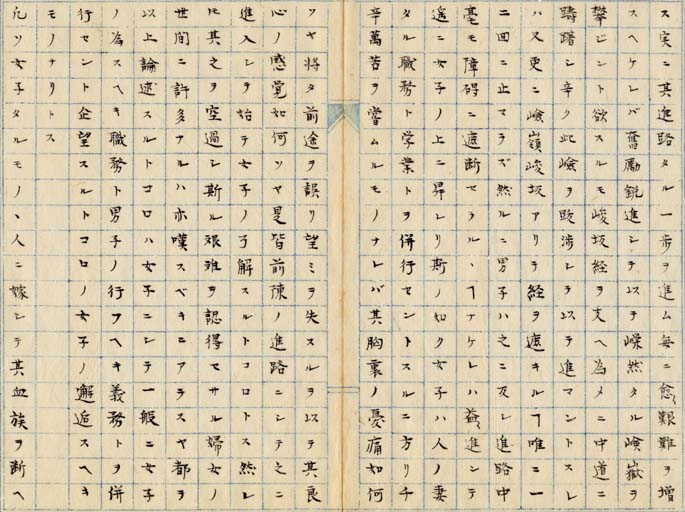 ス実ニ其進路タル一歩ヲ進ム毎ニ愈艱難ヲ増
スヘケレバ奮励鋭進シテ以テ嶸然タル嶮嶽ヲ
攀ジント欲スルモ峻坂経ヲ支ヘ為メニ中道ニ
躊躇シ辛ク此嶮ヲ跋渉シテ以テ進マントスレ
ハ又更ニ嶮嶺峻坂アリテ経ヲ遮キルヿ唯ニ一
二回ニ止マラズ然ルニ男子ハ之ニ反シ進路中
毫モ障碍ニ遮断セラルヽヿナケレハ益進ンテ
遥ニ女子ノ上ニ昇レリ斯ノ如ク女子ハ人ノ妻
タル職務ト学業トヲ併行セントスルニ方リ千
辛萬苦ヲ嘗ムルモノナレバ其胸裏ノ憂痛如何
ソヤ将タ前途ヲ誤リ望ミヲ失スルヲ以テ其良
心ノ感覚如何ソヤ是皆前陳ノ進路ニシテ之ニ
進入シテ始テ女子ノ了解スルトコロトス然レ
ㇳモ其之ヲ空過シ斯ル艱難ヲ認得セサル婦女ノ
世間ニ許多ナルハ亦嘆スベキニアラスヤ都ヲ
以上論述スルトコロハ女子ニシテ一般ニ女子
ノ為スヘキ職務ト男子ノ行フヘキ義務トヲ併
行セント企望スルトコロノ女子ノ邂逅スヘキ
モノナリトス
凡ソ女子タルモノヽ人ニ嫁シテ其血族ヲ断ヘ